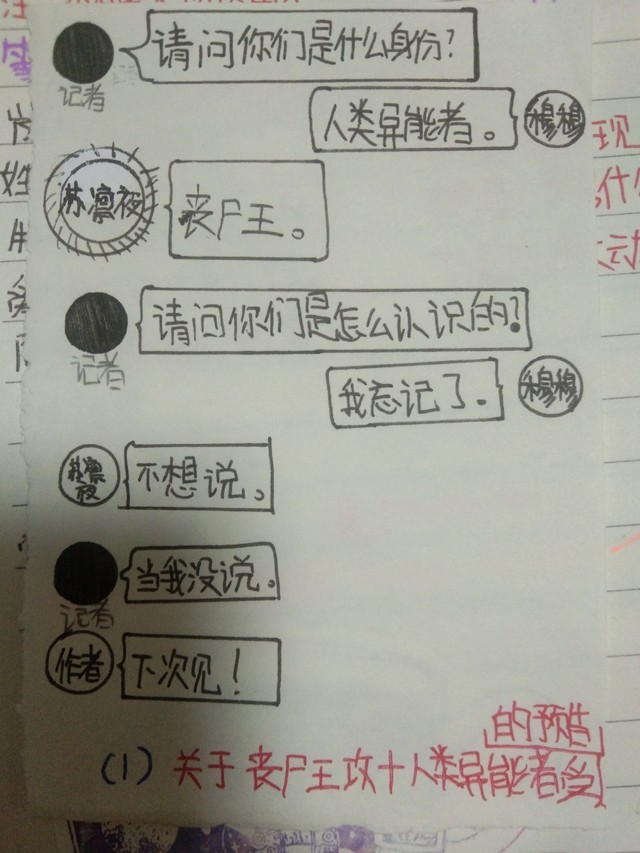 请问你们是什么身份?
记者
人类异能者。
穆穆
苏凛夜
丧尸王。
请问你们是怎么认识的?
记者
我忘记了.
穆穆
苏凛夜
不想说。
当我没说。
记者
作者
下次见!
的预告
(1)关于丧尸王攻十人类异能者受
现
什
动
姓